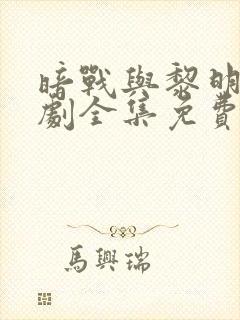 暗戰與黎明
劇全集免費
馬興瑞